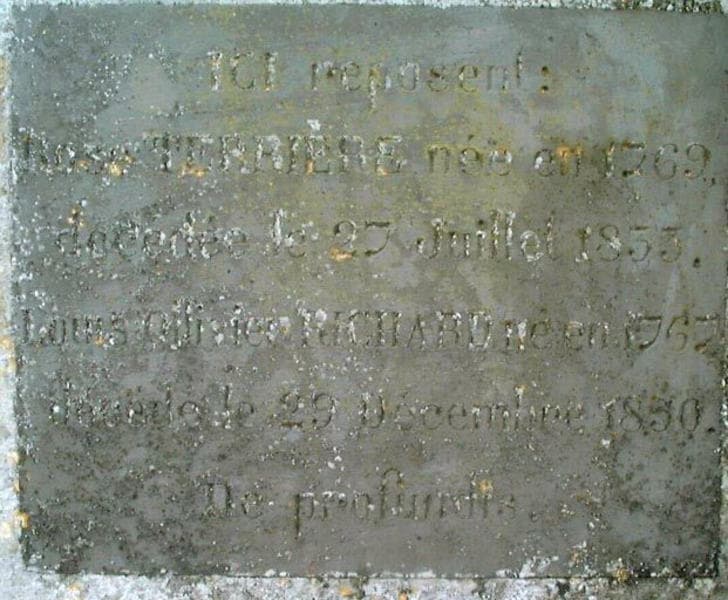 ICI reposent :
Rose TERRIÈRE née en 1769,
décédée le 27 Juillet 1833.
Louis Ollivier RICHARD né en 1767
décédé le 29 Décembre 1850.
De profundis.